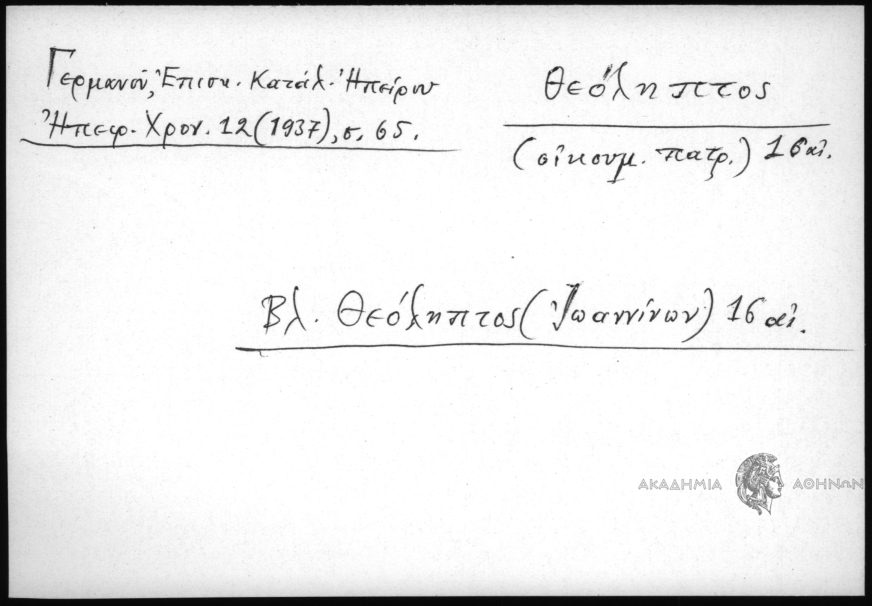 Γερμανοῦ, Ἐπισκ. Κατάλ. Ἠπείρου
Ἠπειρ. Χρον. 12 (1937), σ. 65.
Θεόληπτος
(οἰκουμ. πατρ.) 16 αἰ.
Βλ. Θεόληπτος (Ἰωαννίνων) 16 αἰ.
ΑΚΑΔΗΜΙΑ ΑΘΗΝΩΝ